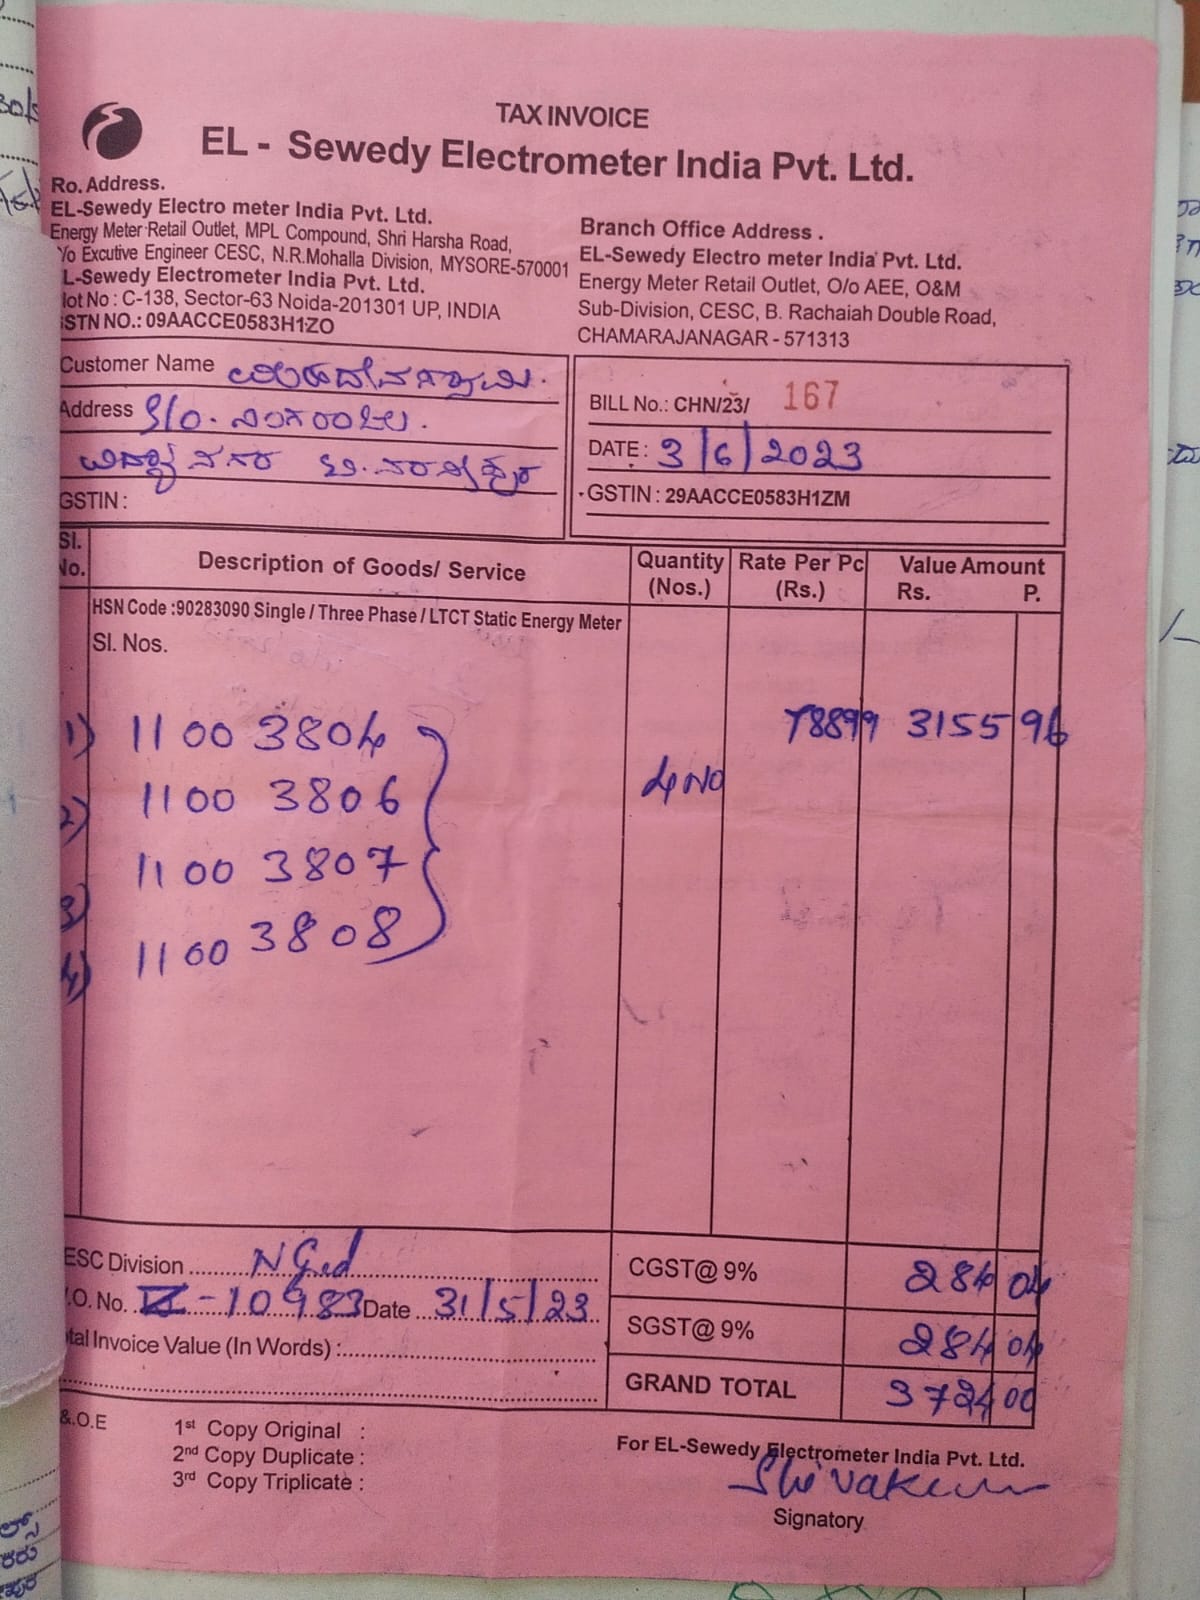 TAX INVOICE
EL - Sewedy Electrometer India Pvt. Ltd.
Ro. Address.
EL-Sewedy Electro meter India Pvt. Ltd.
Energy Meter Retail Outlet, MPL Compound, Shri Harsha Road,
/o Excutive Engineer CESC, N.R.Mohalla Division, MYSORE-570001
L-Sewedy Electrometer India Pvt. Ltd.
lot No : C-138, Sector-63 Noida-201301 UP, INDIA
STN NO.: 09AACCE0583H1ZO
Branch Office Address .
EL-Sewedy Electro meter India Pvt. Ltd.
Energy Meter Retail Outlet, O/o AEE, O&M
Sub-Division, CESC, B. Rachaiah Double Road,
CHAMARAJANAGAR - 571313
Customer Name
Address S/O.
GSTIN :
BILL No.: CHN/23/ 167
DATE : 3/6/2023
GSTIN : 29AACCE0583H1ZM
Sl. No. Description of Goods/ Service Quantity (Nos.) Rate Per Pc (Rs.) Value Amount Rs. P.
HSN Code :90283090 Single / Three Phase / LTCT Static Energy Meter
Sl. Nos.
1) 11 00 3804 78899 3155 96
2) 11 00 3806 4 NO
3) 11 00 3807
4) 11 00 3808
ESC Division
.O. No. - 10983 Date 31/5/23
tal Invoice Value (In Words) :
CGST@ 9% 284 04
SGST@ 9% 284 04
GRAND TOTAL 3724 00
&.O.E
1st Copy Original :
2nd Copy Duplicate :
3rd Copy Triplicate :
For EL-Sewedy Electrometer India Pvt. Ltd.
Signatory